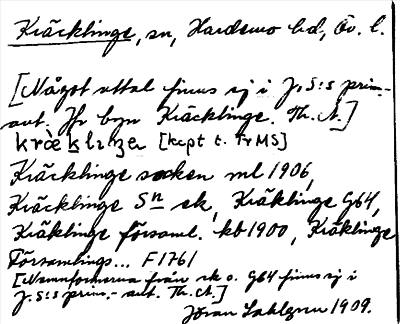 Kräcklinge, sn, Hardemo hd, Ör. l.
[Något uttal finns ej i J. S:s prim.-
ant. Jfr byn Kräcklinge. Th. A.]
[kopt t. FrMS]
Kräcklinge socken ml 1906,
Kräcklinge Sn sk, Kräklinge G64,
Kräklinge församl. kb 1900, Kräklinge
Församlings... F1761
[Namnformerna från sk o. G64 finns ej i
J. S:s prim.- ant. Th. A.]
Jöran Sahlgren 1909.